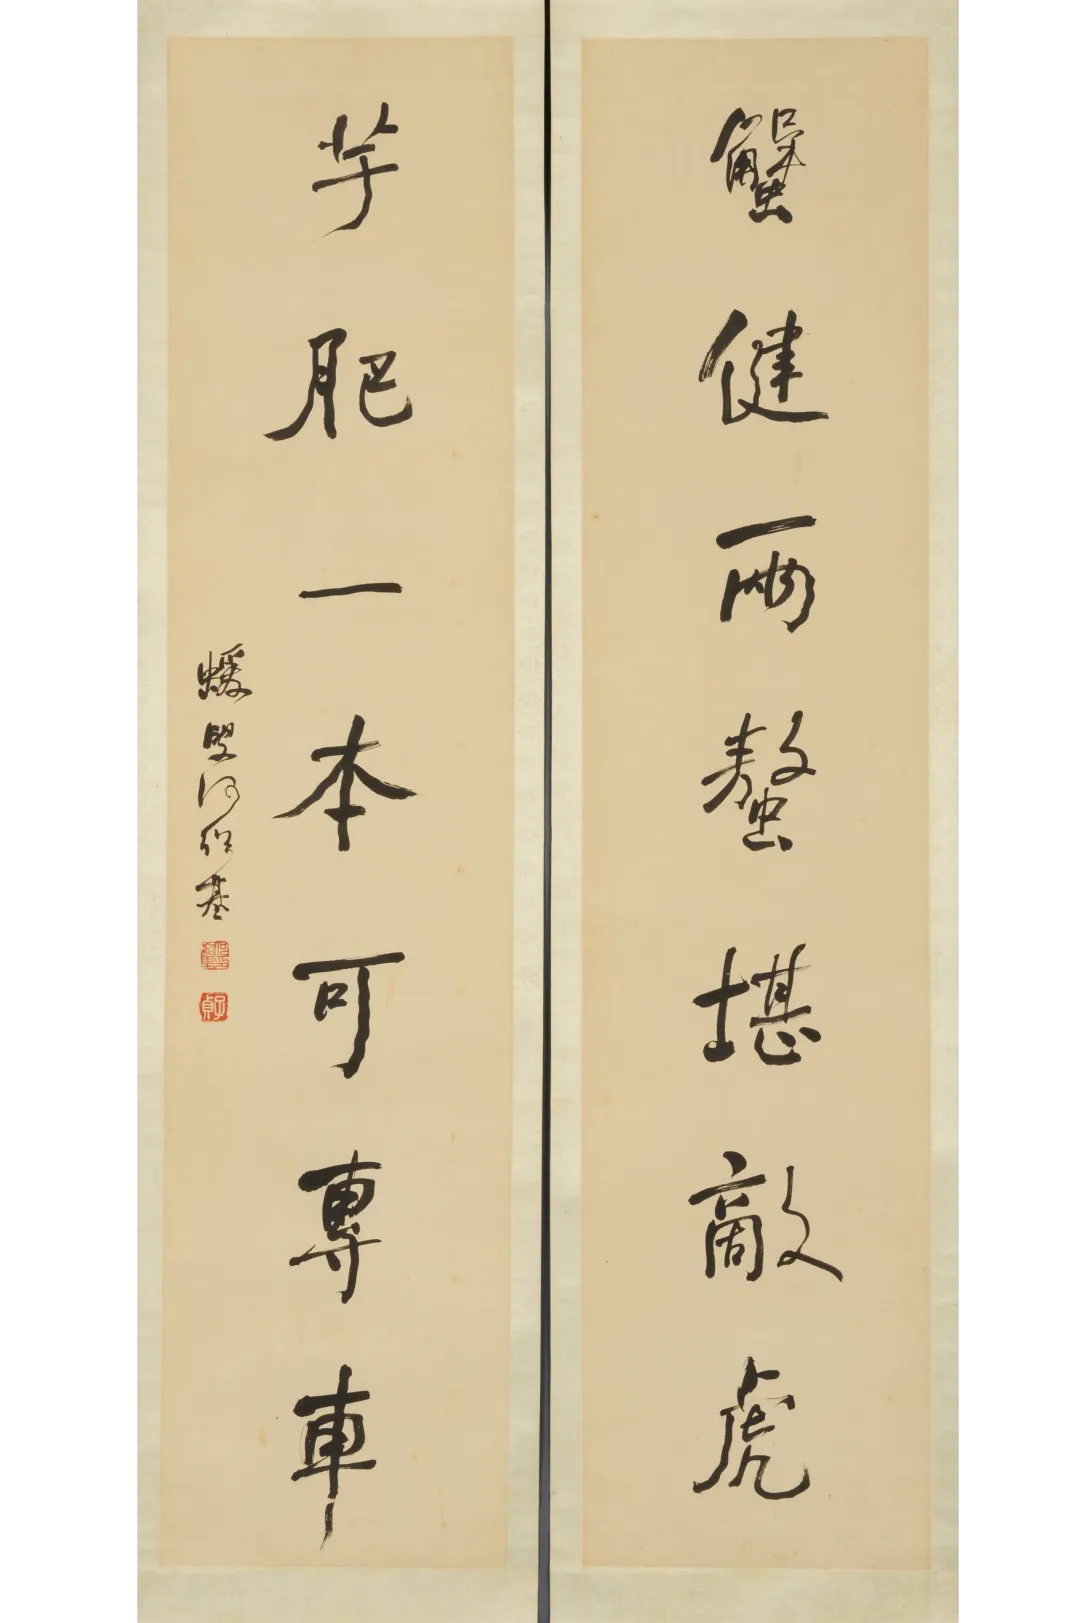 蟹健兩螯堪敵虎
芋肥一本可專車
蝯叟何紹基
子貞